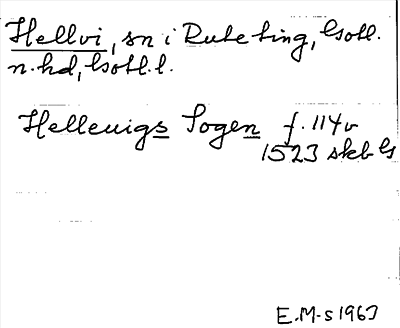 Hellvi, sn i Rute ting, Gotl.
n. hd, Gotl. l.
Helleuigs Sogen f. 114v
1523 skb G
E.M-s 1963